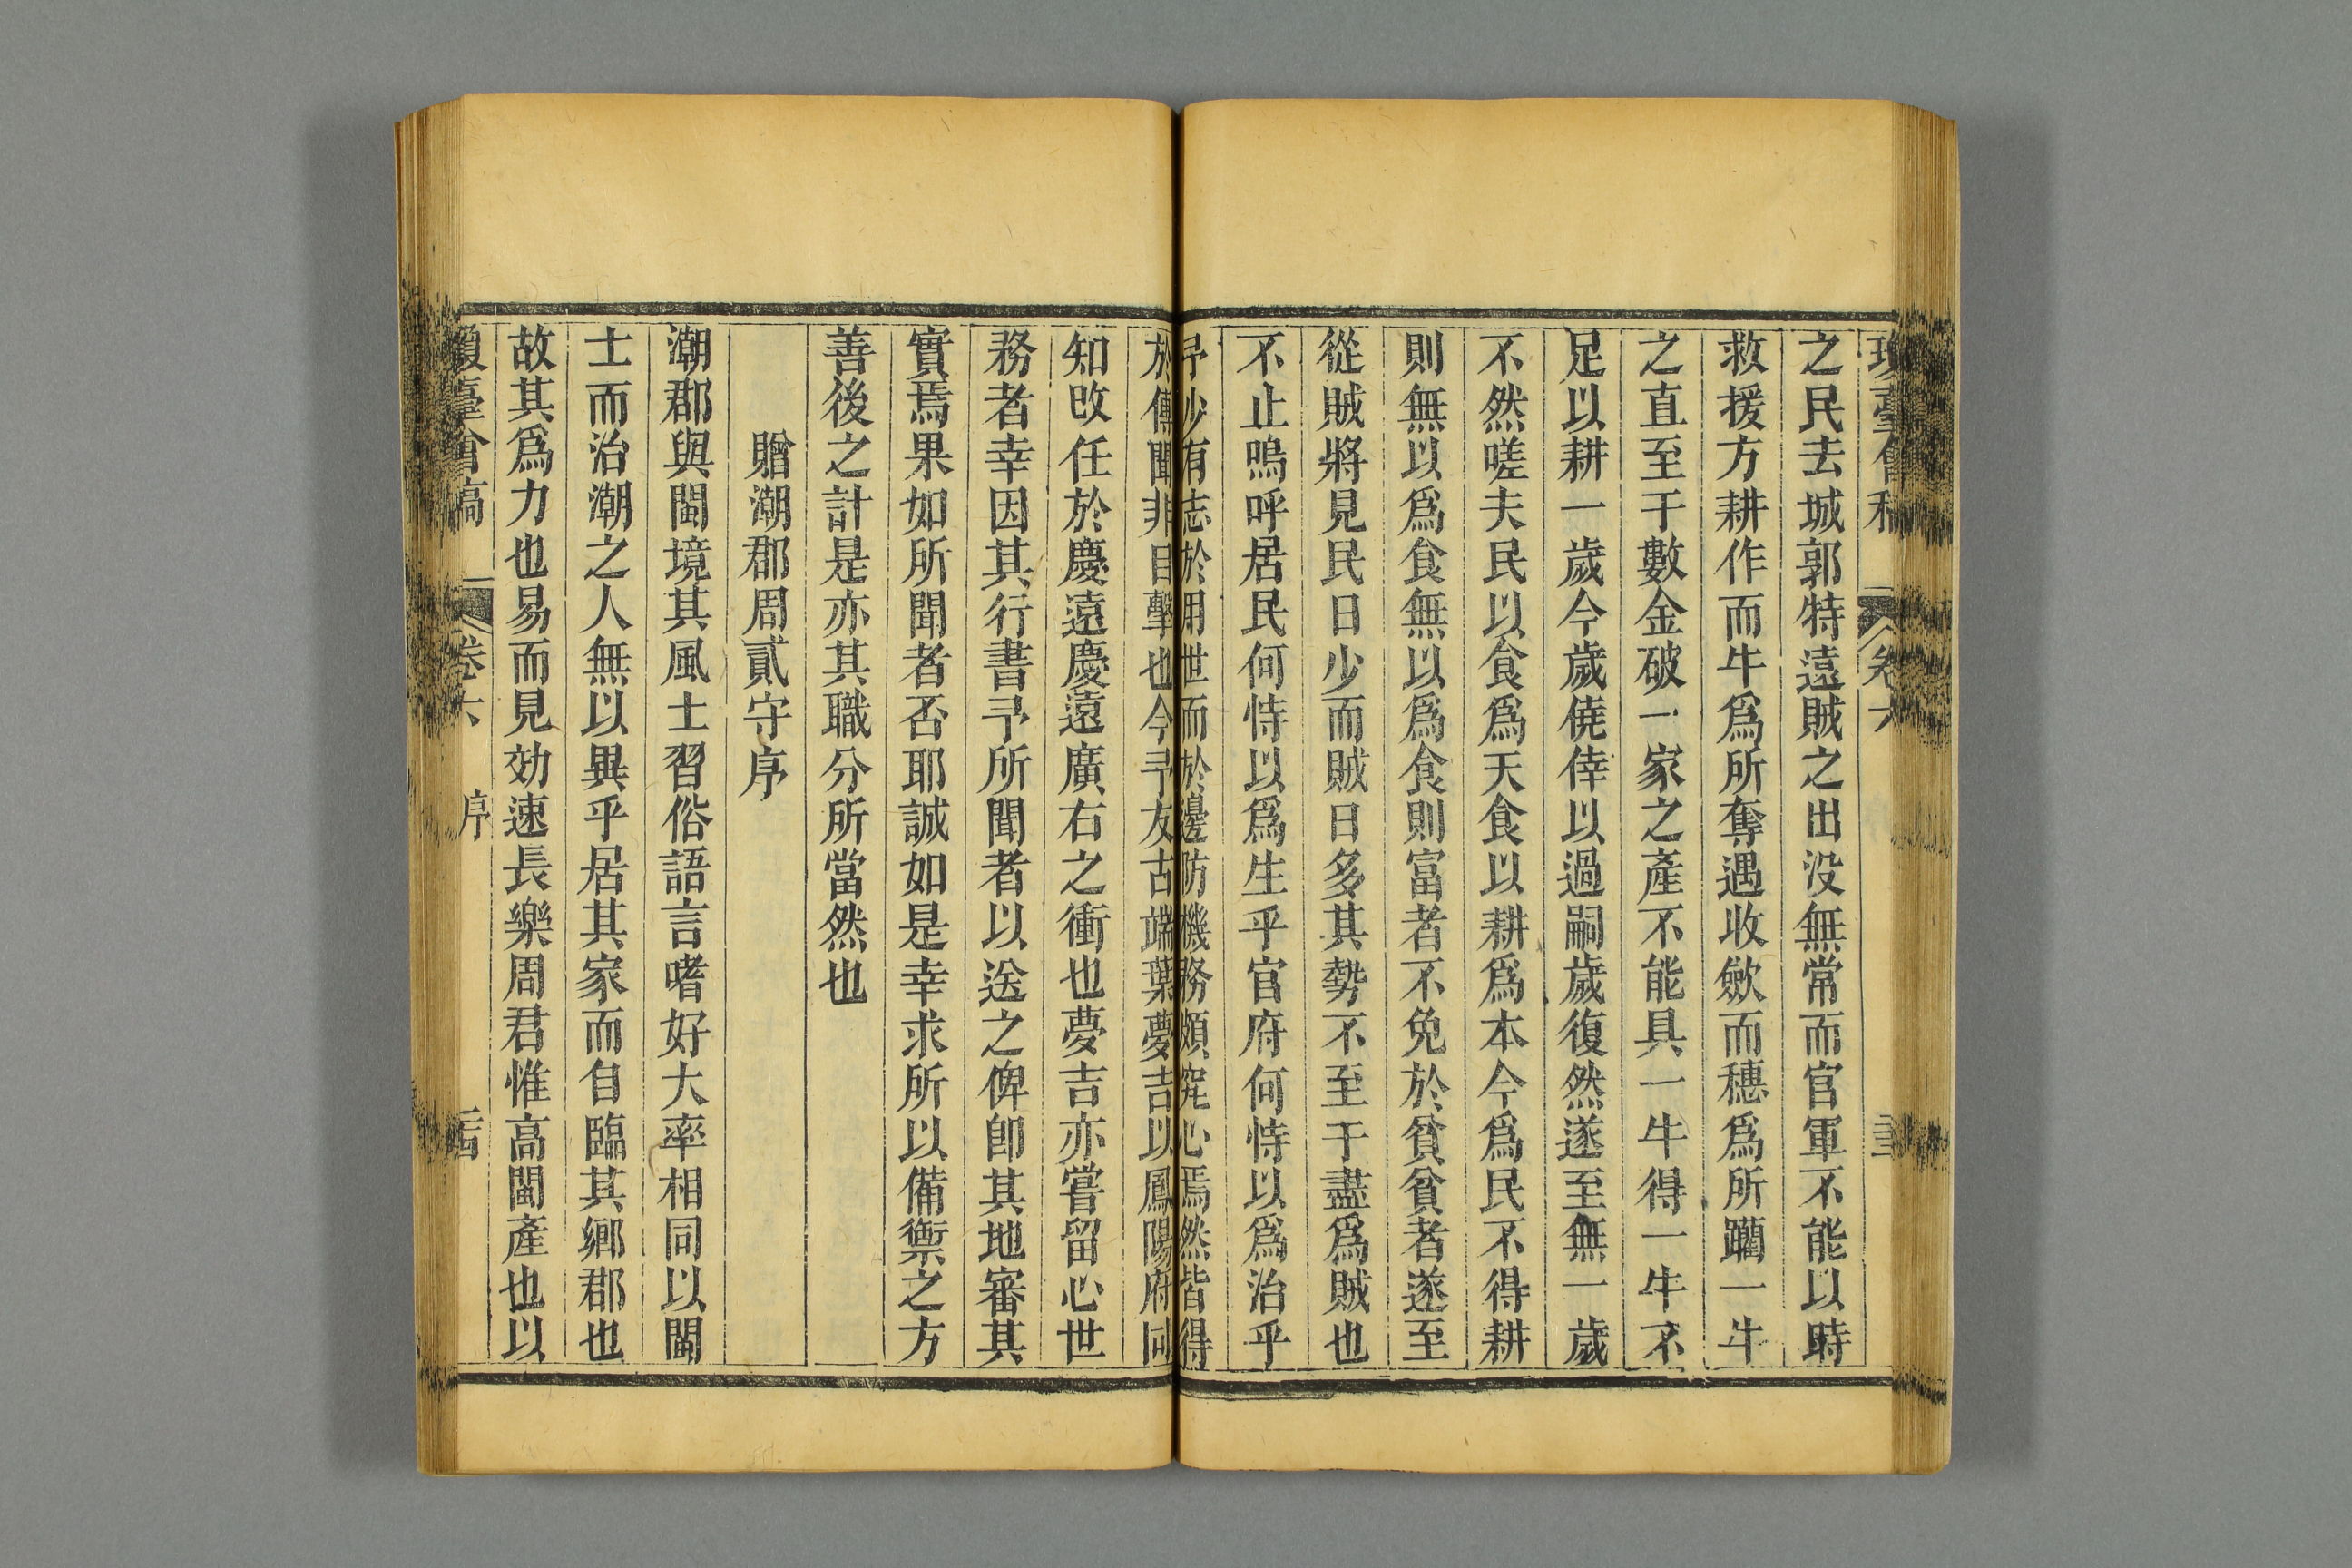 瓊臺會稿 卷六
之民去城郭特遠賊之出没無常而官軍不能以時
救援方耕作而牛爲所奪遇收歛而穗爲所躪一牛
之直至于數金破一家之產不能具一牛得一牛不
足以耕一歲今歲僥倖以過嗣歲復然遂至無一歲
不然嗟夫民以食爲天食以耕爲本今爲民不得耕
則無以爲食無以爲食則富者不免於貧貧者遂至
從賊將見民日少而賊日多其勢不至于盡爲賊也
不止嗚呼居民何恃以爲生乎官府何恃以爲治乎
予少有志於用世而於邊防機務頗究心焉然皆得
於傳聞非目擊也今予友古端葉夢吉以鳳陽府同
知改任於慶遠慶遠廣右之衝也夢吉亦嘗留心世
務者幸因其行書予所聞者以送之俾卽其地審其
實焉果如所聞者否耶誠如是幸求所以備禦之方
善後之計是亦其職分所當然也
贈潮郡周貳守序
潮郡與閩境其風土習俗語言嗜好大率相同以閩
士而治潮之人無以異乎居其家而自臨其鄉郡也
故其爲力也易而見効速長樂周君惟高閩產也以
瓊臺會稿 卷六 序